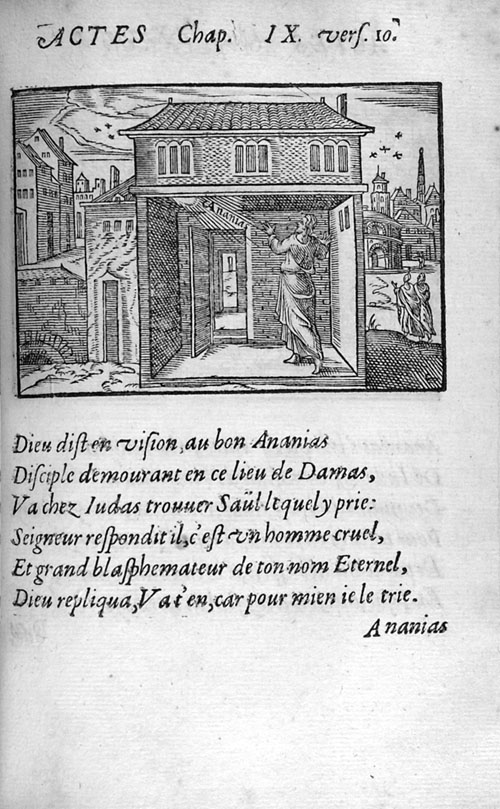 ACTES Chap. IX. verſ. 10.
Ananias
Dieu diſt en viſion, au bon Ananias
Diſciple demourant en ce lieu de Damas,
Va chez Iudas trouuer Saül lequel y prie:
Seigneur reſpondit il, c'eſt vn homme cruel,
Et grand blaſphemateur de ton nom Eternel,
Dieu repliqua, Va t'en, car pour mien ie le trie.
Ananias